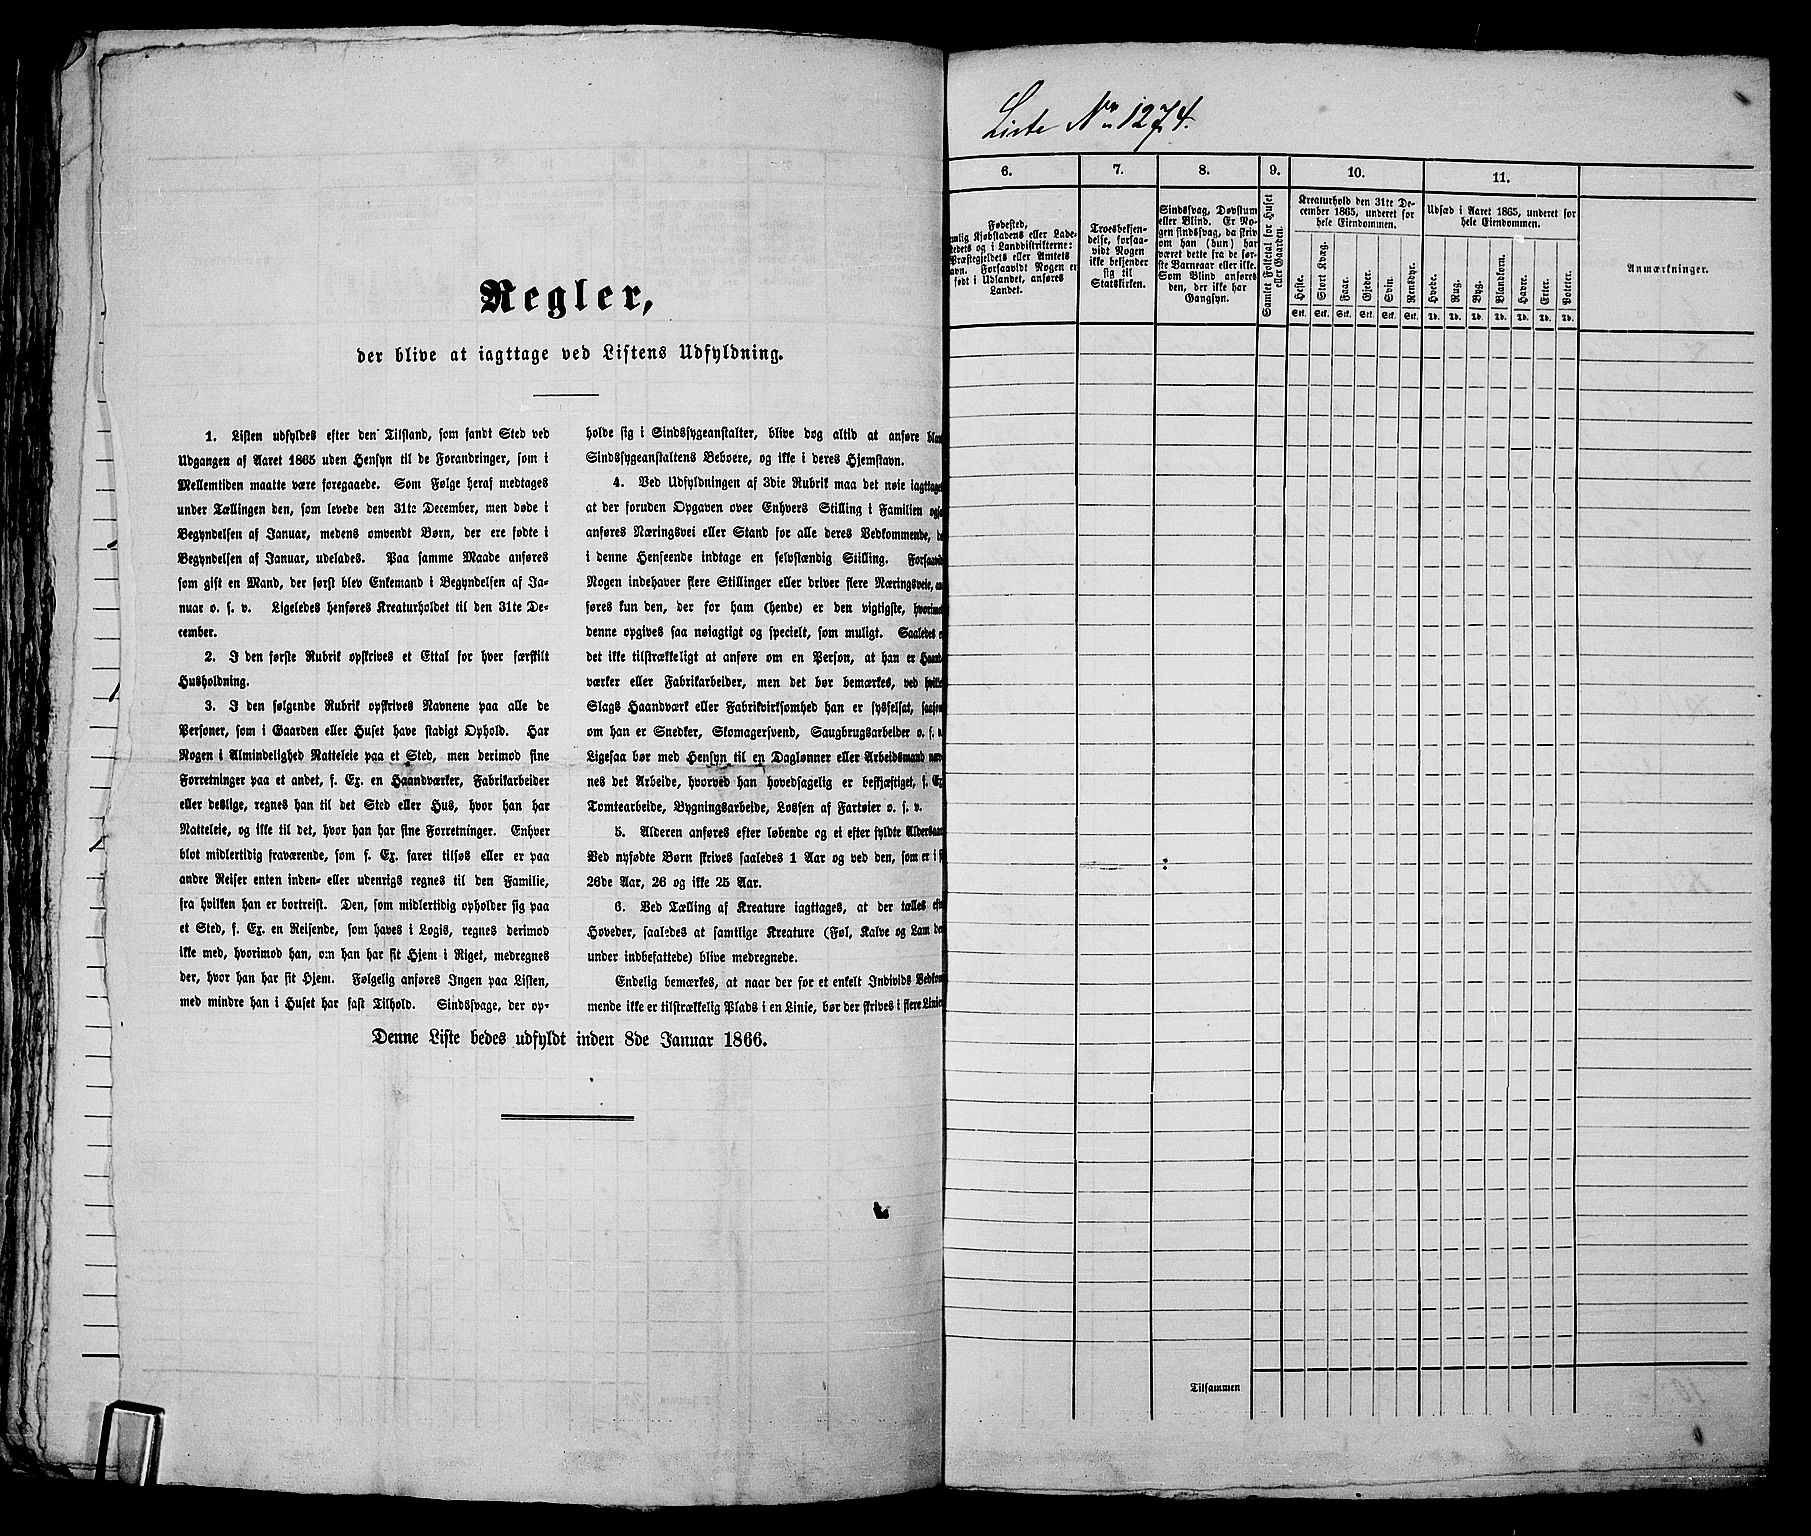 Regler,
der blive at iagttage ved Listens Udfyldning.
1. Listen udfyldes efter den Tilstand, som fandt Sted ved
Udgangen af Aaret 1865 uden Hensyn til de Forandringer, som i
Mellemtiden maatte være foregaaede. Som Følge heraf medtages
under Tællingen den, som levede den 31te December, men døde i
Begyndelsen af Januar, medens omvendt Børn, der ere fødte i
Begyndelsen af Januar, udelades. Paa samme Maade anføres
som gift en Mand, der først blev Enkemand i Begyndelsen af Ja-
nuar o. s. v. Ligeledes henføres Kreaturholdet til den 31te De-
cember.
2. I den første Rubrik opskrives et Ettal for hver særskilt
Husholdning.
3. I den følgende Rubrik opskrives Navnene paa alle de
Personer, som i Gaarden eller Huset have stadigt Ophold. Har
Nogen i Almindelighed Natteleie paa et Sted, men derimod sine
Forretninger paa et andet, f. Ex. en Haandværker, Fabrikarbeider
eller deslige, regnes han til det Sted eller Hus, hvor han har
Natteleie, og ikke til det, hvor han har sine Forretninger. Enhver
blot midlertidig fraværende, som f. Ex. farer tilsøs eller er paa
andre Reiser enten inden- eller udenrigs regnes til den Familie,
fra hvilken han er bortreist. Den, som midlertidig opholder sig paa
et Sted, f. Ex. en Reisende, som haves i Logis, regnes derimod
ikke med, hvorimod han, om han har sit Hjem i Riget, medregnes
der, hvor han har sit Hjem. Følgelig anføres Ingen paa Listen,
med mindre han i Huset har fast Tilhold. Sindssvage, der op-
holde sig i Sindssygeanstalter, blive dog altid at anføre
Sindssygeanstaltens Beboere, og ikke i deres Hjemstavn.
4. Ved Udfyldningen af 3die Rubrik maa det nøie iagttages
at der foruden Opgaven over Enhvers Stilling i Familien
anføres Næringsvei eller Stand for alle deres Vedkommende,
i denne Henseende indtage en selvstændig Stilling. Forsaavidt
Nogen indehaver flere Stillinger eller driver flere Næringsveie, an-
føres kun den, der for ham (hende) er den vigtigste, hvorimod
denne opgives saa nøiagtigt og specielt, som muligt. Saaledes
det ikke tilstrækkeligt at anføre om en Person, at han er Haand-
værker eller Fabrikarbeider, men det bør bemærkes, ved hvilket
Slags Haandværk eller Fabrikvirksomhed han er sysselsat, saasom
om han er Snedker, Skomagersvend, Saugbrugsarbeider o. s. v.
Ligesaa bør med Hensyn til en Daglønner eller Arbeidsmand næv-
nes det Arbeide, hvorved han hovedsagelig er beskjæftiget, f. Ex.
Tomtearbeide, Bygningsarbeide, Lossen af Fartøier o. s. v.
5. Alderen anføres efter løbende og ei efter fyldte Aldersaar
Ved nyfødte Børn skrives saaledes 1 Aar og ved den, som er i
26de Aar, 26 og ikke 25 Aar.
6. Ved Tælling af Kreature iagttages, at der tælles efter
Hoveder, saaledes at samtlige Kreature (Føl, Kalve og Lam
under indbefattede) blive medregnede.
Endelig bemærkes, at naar der for et enkelt Individs Vedkom-
mende ikke er tilstrækkelig Plads i en Linie, bør der skrives i flere Linier
Denne Liste bedes udfyldt inden 8de Januar 1866.
Liste No 1274.
6. 7. 8. 9. 10. 11.
Fødested,
nemlig Kjøbstadens eller Lade-
stedets og i Landdistrikterne:
Præstegjeldets eller Amtets
Navn. Forsaavidt Nogen er
født i Udlandet, anføres
Landet.
Troesbekjen-
delse, forsaa-
vidt Nogen
ikke bekjender
sig til
Statskirken.
Sindssvag, Døvstum
eller Blind. Er No-
gen sindssvag, da skriv
om han (hun) har
været dette fra de før-
ste Barneaar eller ikke.
Som Blind anføres
den, der ikke har
Gangsyn.
Samlet Folketal for Huset
eller Gaarden.
Kreaturhold den 31te De-
cember 1865, underet for
hele Eiendommen.
Heste. Stort Kvæg. Faar. Gjeder. Svin. Rensdyr.
Stk. Stk. Stk. Stk. Stk. Stk.
Udsæd i Aaret 1865, underet for
hele Eiendommen.
Hvede. Rug. Byg. Blandkorn. Havre. Erter. Poteter.
Td. Td. Td. Td. Td. Td. Td.
Anmærkninger.
Tilsammen